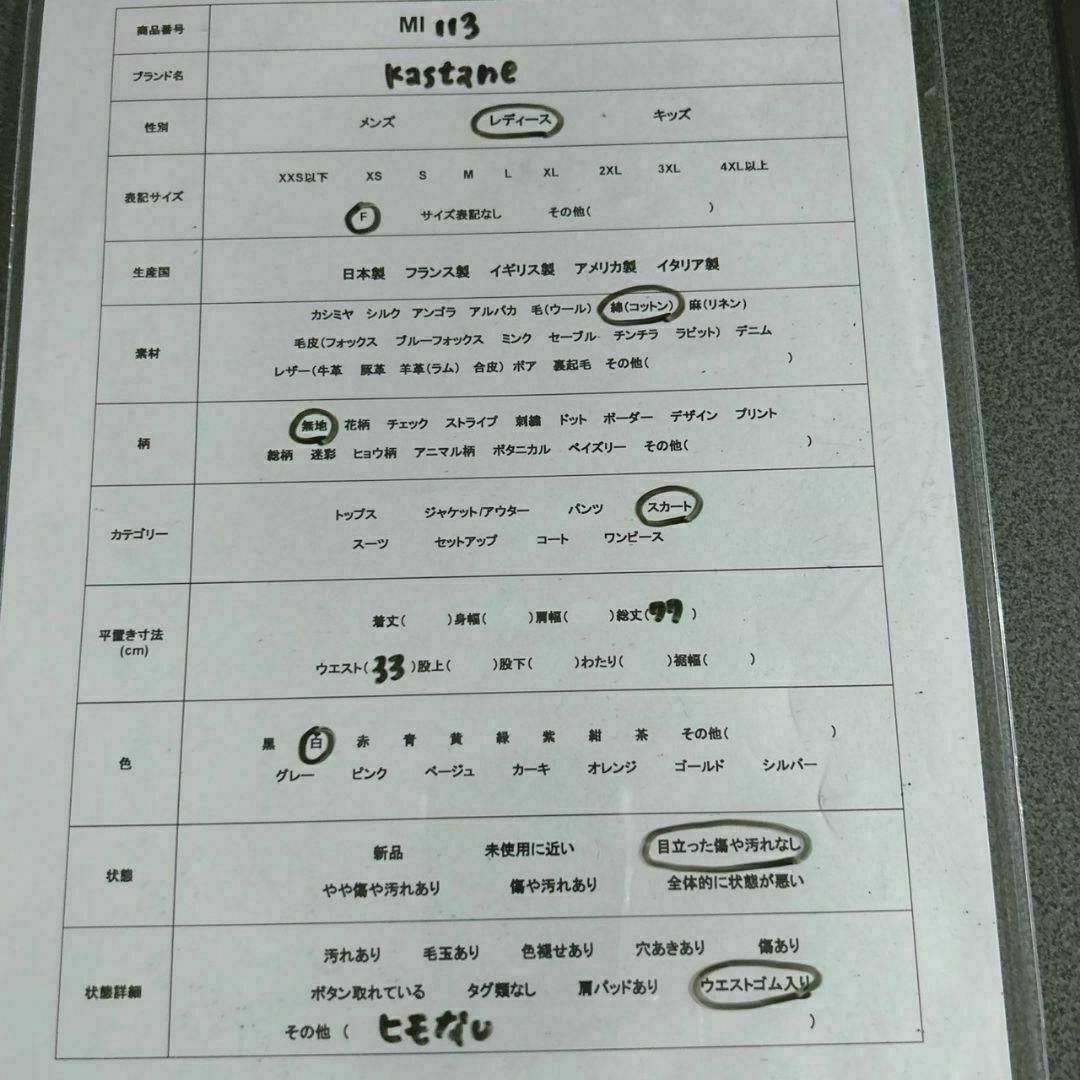 商品番号 MI 113
ブランド名 Kastane
性別 メンズ レディース キッズ
表記サイズ XXS以下 XS S M L XL 2XL 3XL 4XL以上
F サイズ表記なし その他( )
生産国 日本製 フランス製 イギリス製 アメリカ製 イタリア製
素材 カシミヤ シルク アンゴラ アルパカ 毛(ウール) 綿(コットン) 麻(リネン)
毛皮(フォックス ブルーフォックス ミンク セーブル チンチラ ラビット) デニム
レザー(牛革 豚革 羊革(ラム) 合皮) ボア 裏起毛 その他( )
柄 無地 花柄 チェック ストライプ 刺繍 ドット ボーダー デザイン プリント
総柄 迷彩 ヒョウ柄 アニマル柄 ボタニカル ペイズリー その他( )
カテゴリー トップス ジャケット/アウター パンツ スカート
スーツ セットアップ コート ワンピース
平置き寸法
(cm)
着丈( )身幅( )肩幅( )総丈(77 )
ウエスト(33 )股上( )股下( )わたり( )裾幅( )
色 黒 白 赤 青 黄 緑 紫 紺 茶 その他( )
グレー ピンク ベージュ カーキ オレンジ ゴールド シルバー
状態 新品 未使用に近い 目立った傷や汚れなし
やや傷や汚れあり 傷や汚れあり 全体的に状態が悪い
状態詳細 汚れあり 毛玉あり 色褪せあり 穴あきあり 傷あり
ボタン取れている タグ類なし 肩パッドあり ウエストゴム入り
その他 ( ヒモなし )